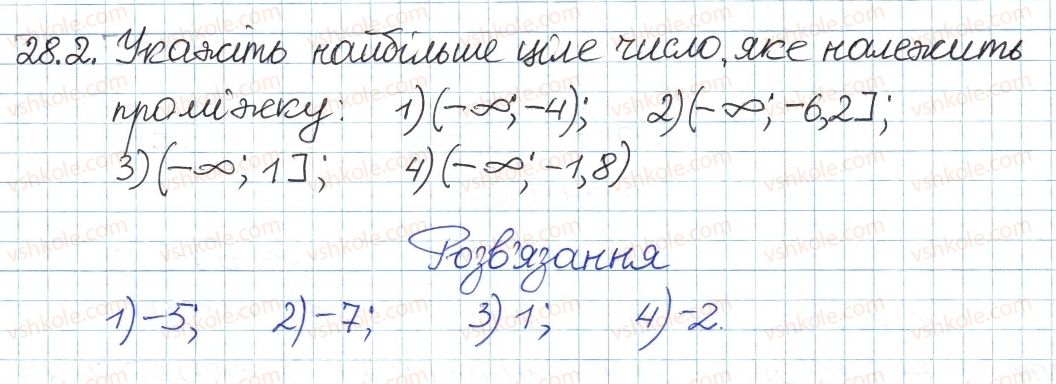 28.2. Укажіть найбільше ціле число, яке належить
проміжку: 1) (-∞; -4); 2) (-∞; -6,2];
3) (-∞; 1]; 4) (-∞; -1,8)
Розв'язання
1) -5; 2) -7; 3) 1; 4) -2.